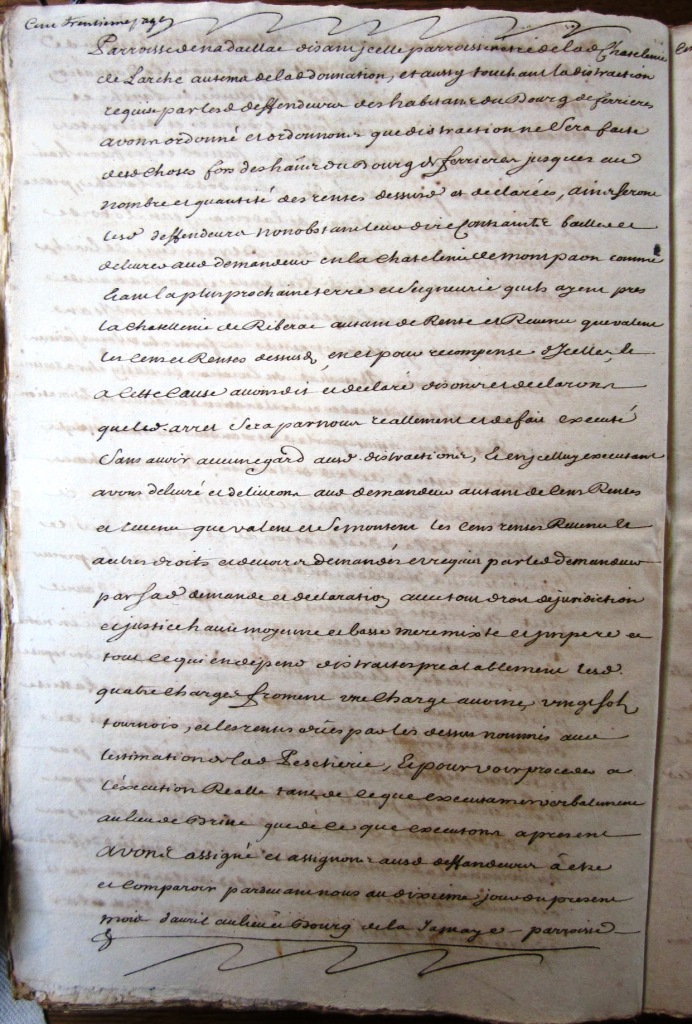 Cent trentieme page
Parroisse de nadaillac disant jcelle parroisse estre de la d Chatelenie
de Larche au sema de la d donnation, et aussy touchant la distraction
requise par les d deffendeurs des habitans du Bourg de ferrieres
avons ordonné et ordonnons que distraction ne Sera faite
desd choses fors des hãns du Bourg de ferrieres jusques au
nombre et quantité des renses dessusd et declarées, ains seront
lesd deffendeurs nonobstant leur dire Contrainte bailler et
delivrer aud demandeur en la Chatelenie de monpaon comme
Estant la plus prochaine terre et Seigneurie quils ayent pres
la Chatellenie de Riberac autant de Rente et Revenu que valent
les Cens et Renses dessusd, en et pour recompense d'Jcelles, le
a Cette Cause avons dit et declaré disons et declarons
que led. arret Sera par nous reallement et de fait executé
Sans avoir aucun egard ausd. distractions, Et en jcelluy executant
avons delivré et delivrons aud demandeur autant de Cens Renses
et revenu que valent et Se montent les cens renses Revenu et
autres droits et devoirs demandés et requis par led demandeur
par Sa d demande et declaration avec tout droit de juridiction
et justice haute moyenne et basse mere mixte et jmpere et
tout ce qui en depend distraites prealablement lesd.
quatre Charges froment une Charge avoine, vingt Sols
tournois, et les renses dües par les dessus nommés avec
lestimation de lad Pescherie, Et pour voir proceder a
l'éxécution Reelle tant de ce que executames verbalement
au lieu de Brive que de ce que executons a present
avons assigné et assignons ausd deffandeurs à estre
et Comparoir pardevant nous au dixieme jour du present
mois d'avril au lieu et Bourg de la Jemaye parroisse